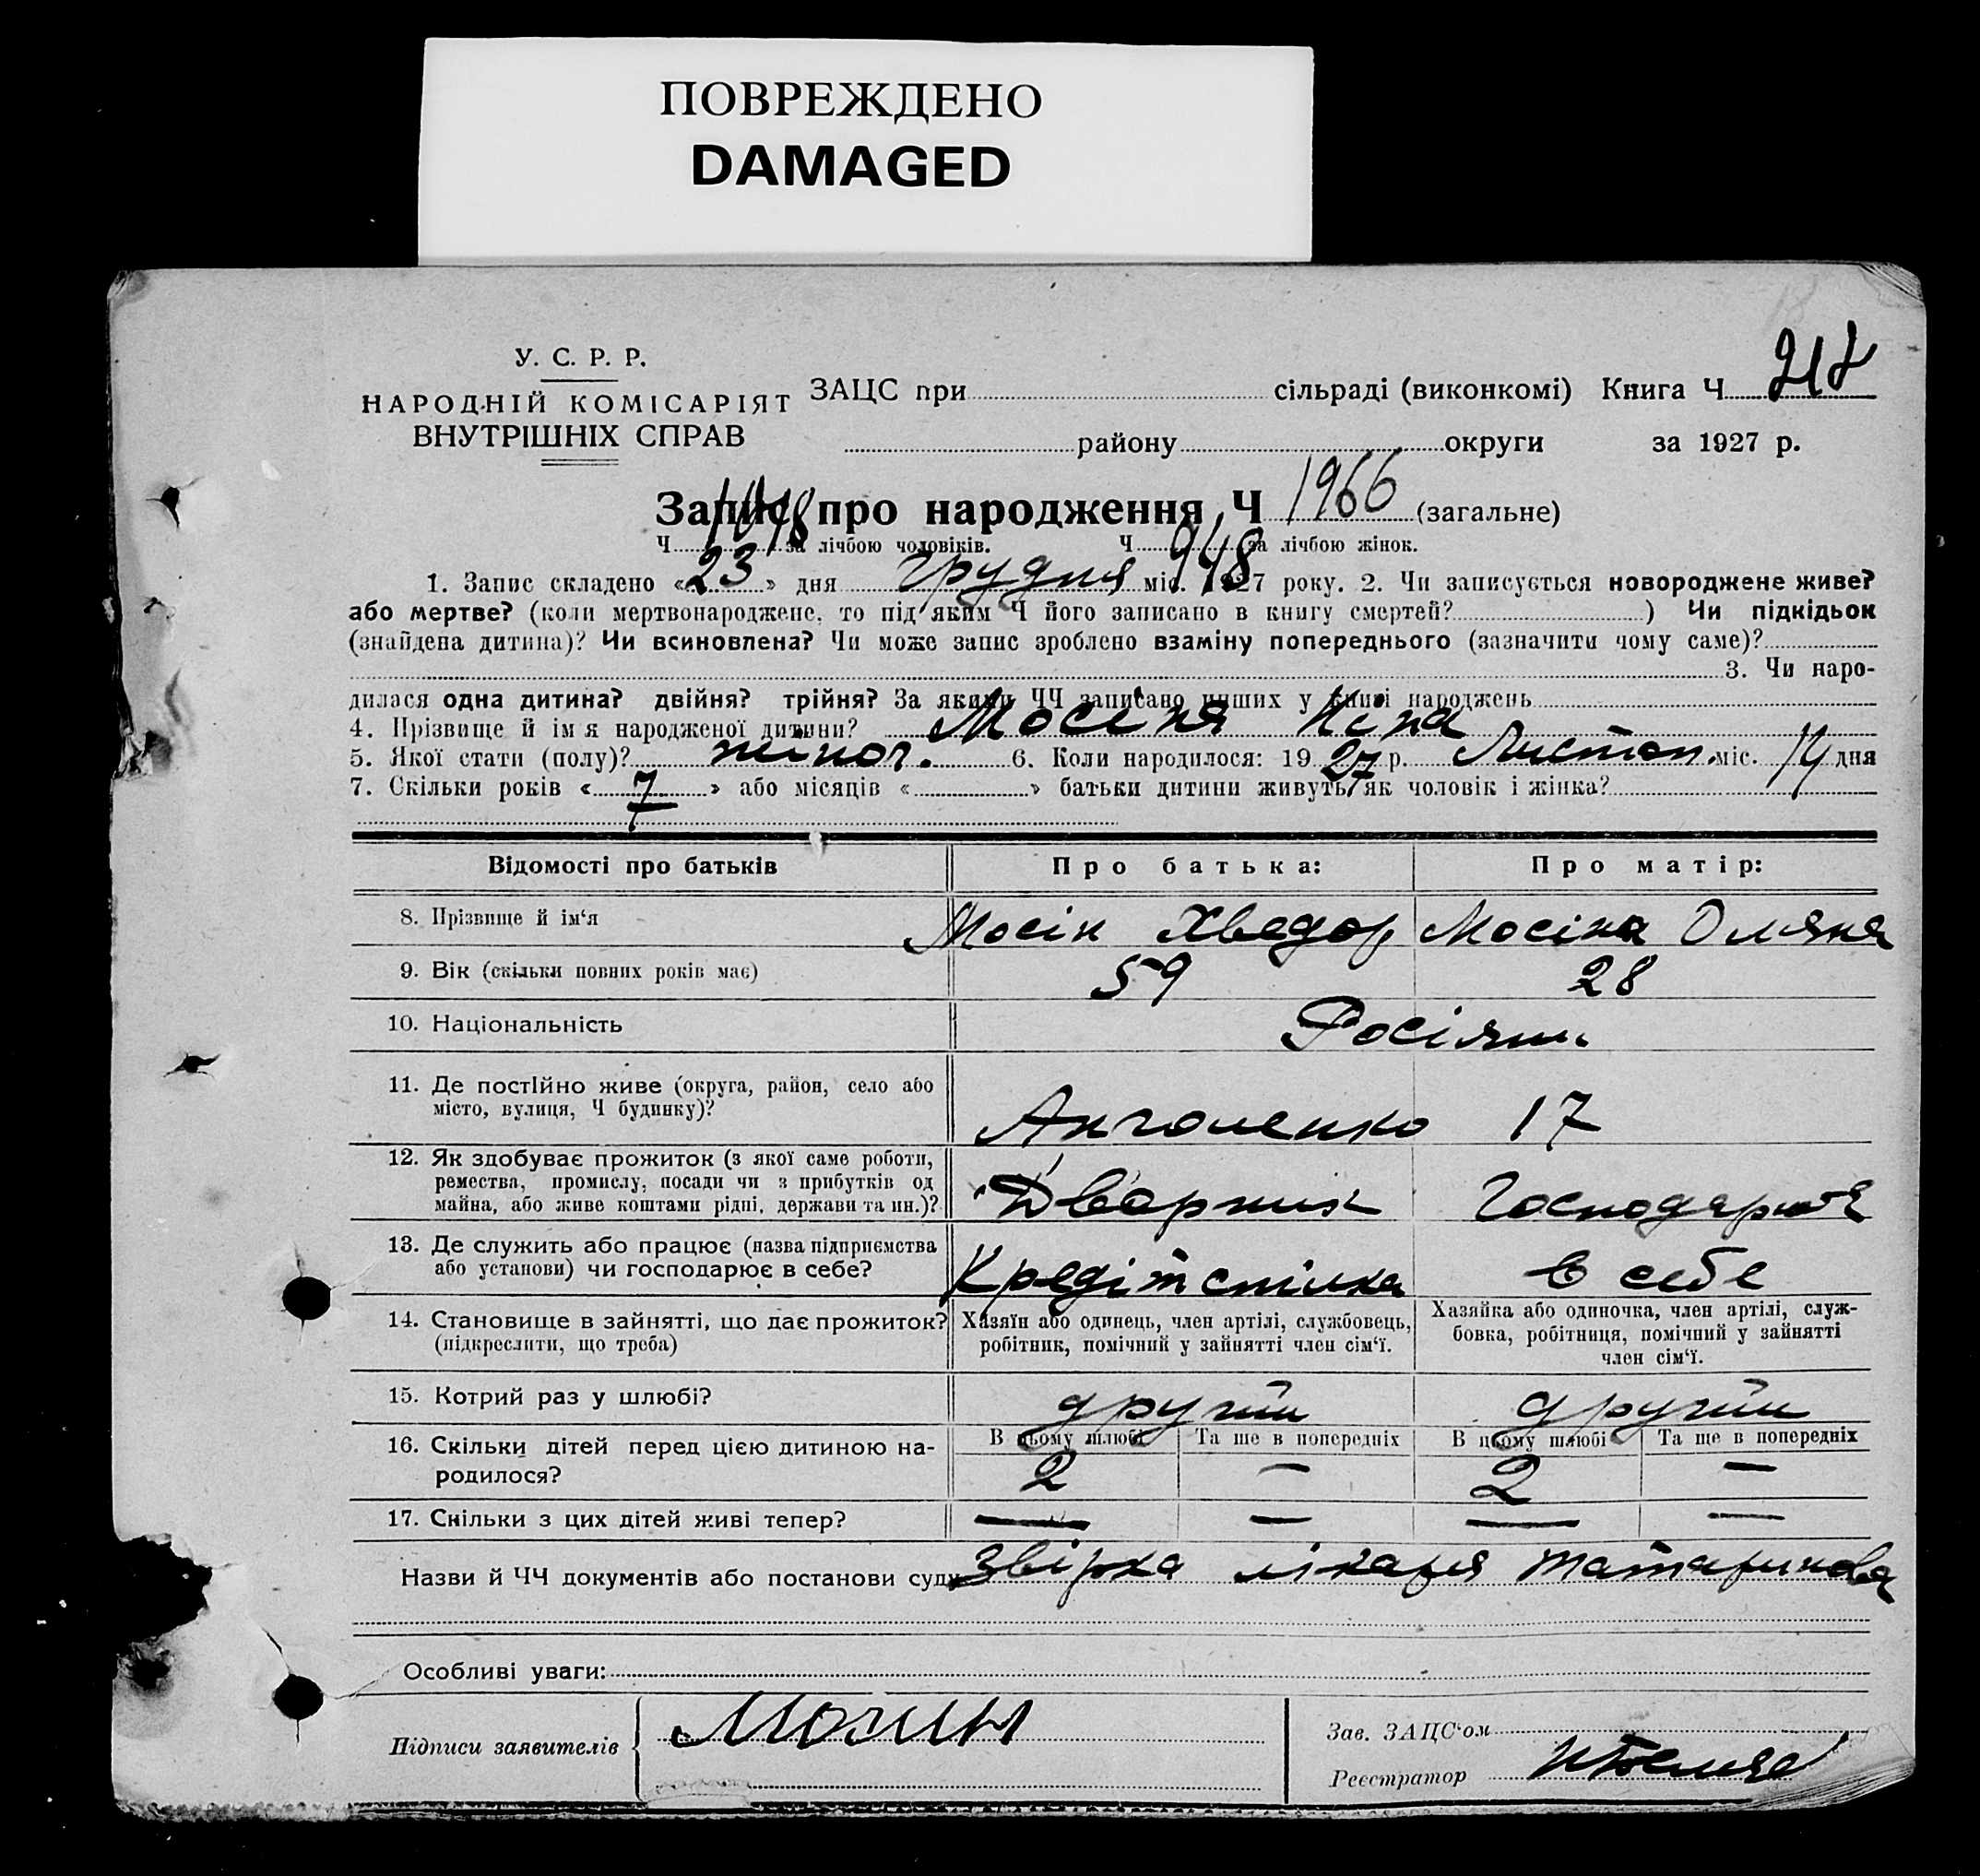 ПОВРЕЖДЕНО
DAMAGED
У. С. Р. Р.
НАРОДНІЙ КОМІСАРІЯТ
ВНУТРІШНІХ СПРАВ
ЗАЦС при сільраді (виконкомі) Книга Ч
району округи за 1927 р.
Запис про народження Ч 1966 (загальне)
Ч 1018 за лічбою чоловіків. Ч 948 за лічбою жінок.
1. Запис складено «23» дня грудня міс. 1927 року. 2. Чи записується новороджене живе?
або мертве? (коли мертвонароджене, то під яким Ч його записано в книгу смертей? ) Чи підкідьок
(знайдена дитина)? Чи всиновлена? Чи може запис зроблено взаміну попереднього (зазначити чому саме)?
3. Чи наро-
дилася одна дитина? двійня? трійня? За якими ЧЧ записано инших у книзі народжень
4. Прізвище й ім'я народженої дитини? Мосіня Ніна
5. Якої стати (полу)? жіноч. 6. Коли народилося: 1927 р. Листоп. міс. 14 дня
7. Скільки років «7» або місяців « » батьки дитини живуть як чоловік і жінка?
Відомості про батьків Про батька: Про матір:
8. Прізвище й ім‘я Мосін Хведор Мосіна Омяна
9. Вік (скільки повних років має) 59 28
10. Національність Росіяни
11. Де постійно живе (округа, район, село або
місто, вулиця, Ч будинку)? 17
12. Як здобуває прожиток (з якої саме роботи,
ремества, промислу, посади чи з прибутків од
майна, або живе коштами рідні, держави та ин.)? Дворник Господарює
13. Де служить або працює (назва підприємства
або установи) чи господарює в себе? Кредіт спілка в себе
14. Становище в зайнятті, що дає прожиток?
(підкреслити, що треба)
Хазяїн або одинець, член артілі, службовець,
робітник, помічний у зайнятті член сім‘ї.
Хазяйка або одиночка, член артілі, служ-
бовка, робітниця, помічний у зайнятті
член сім‘ї.
15. Котрий раз у шлюбі? другий другий
16. Скільки дітей перед цією дитиною на-
родилося?
В цьому шлюбі Та ще в попередніх В цьому шлюбі Та ще в попередніх
2 — 2 —
17. Скільки з цих дітей живі тепер? — — — —
Назви й ЧЧ документів або постанови суду Звірка лікаря Татаринова
Особливі уваги:
Підписи заявителів
Зав. ЗАЦС‘ом
Реєстратор